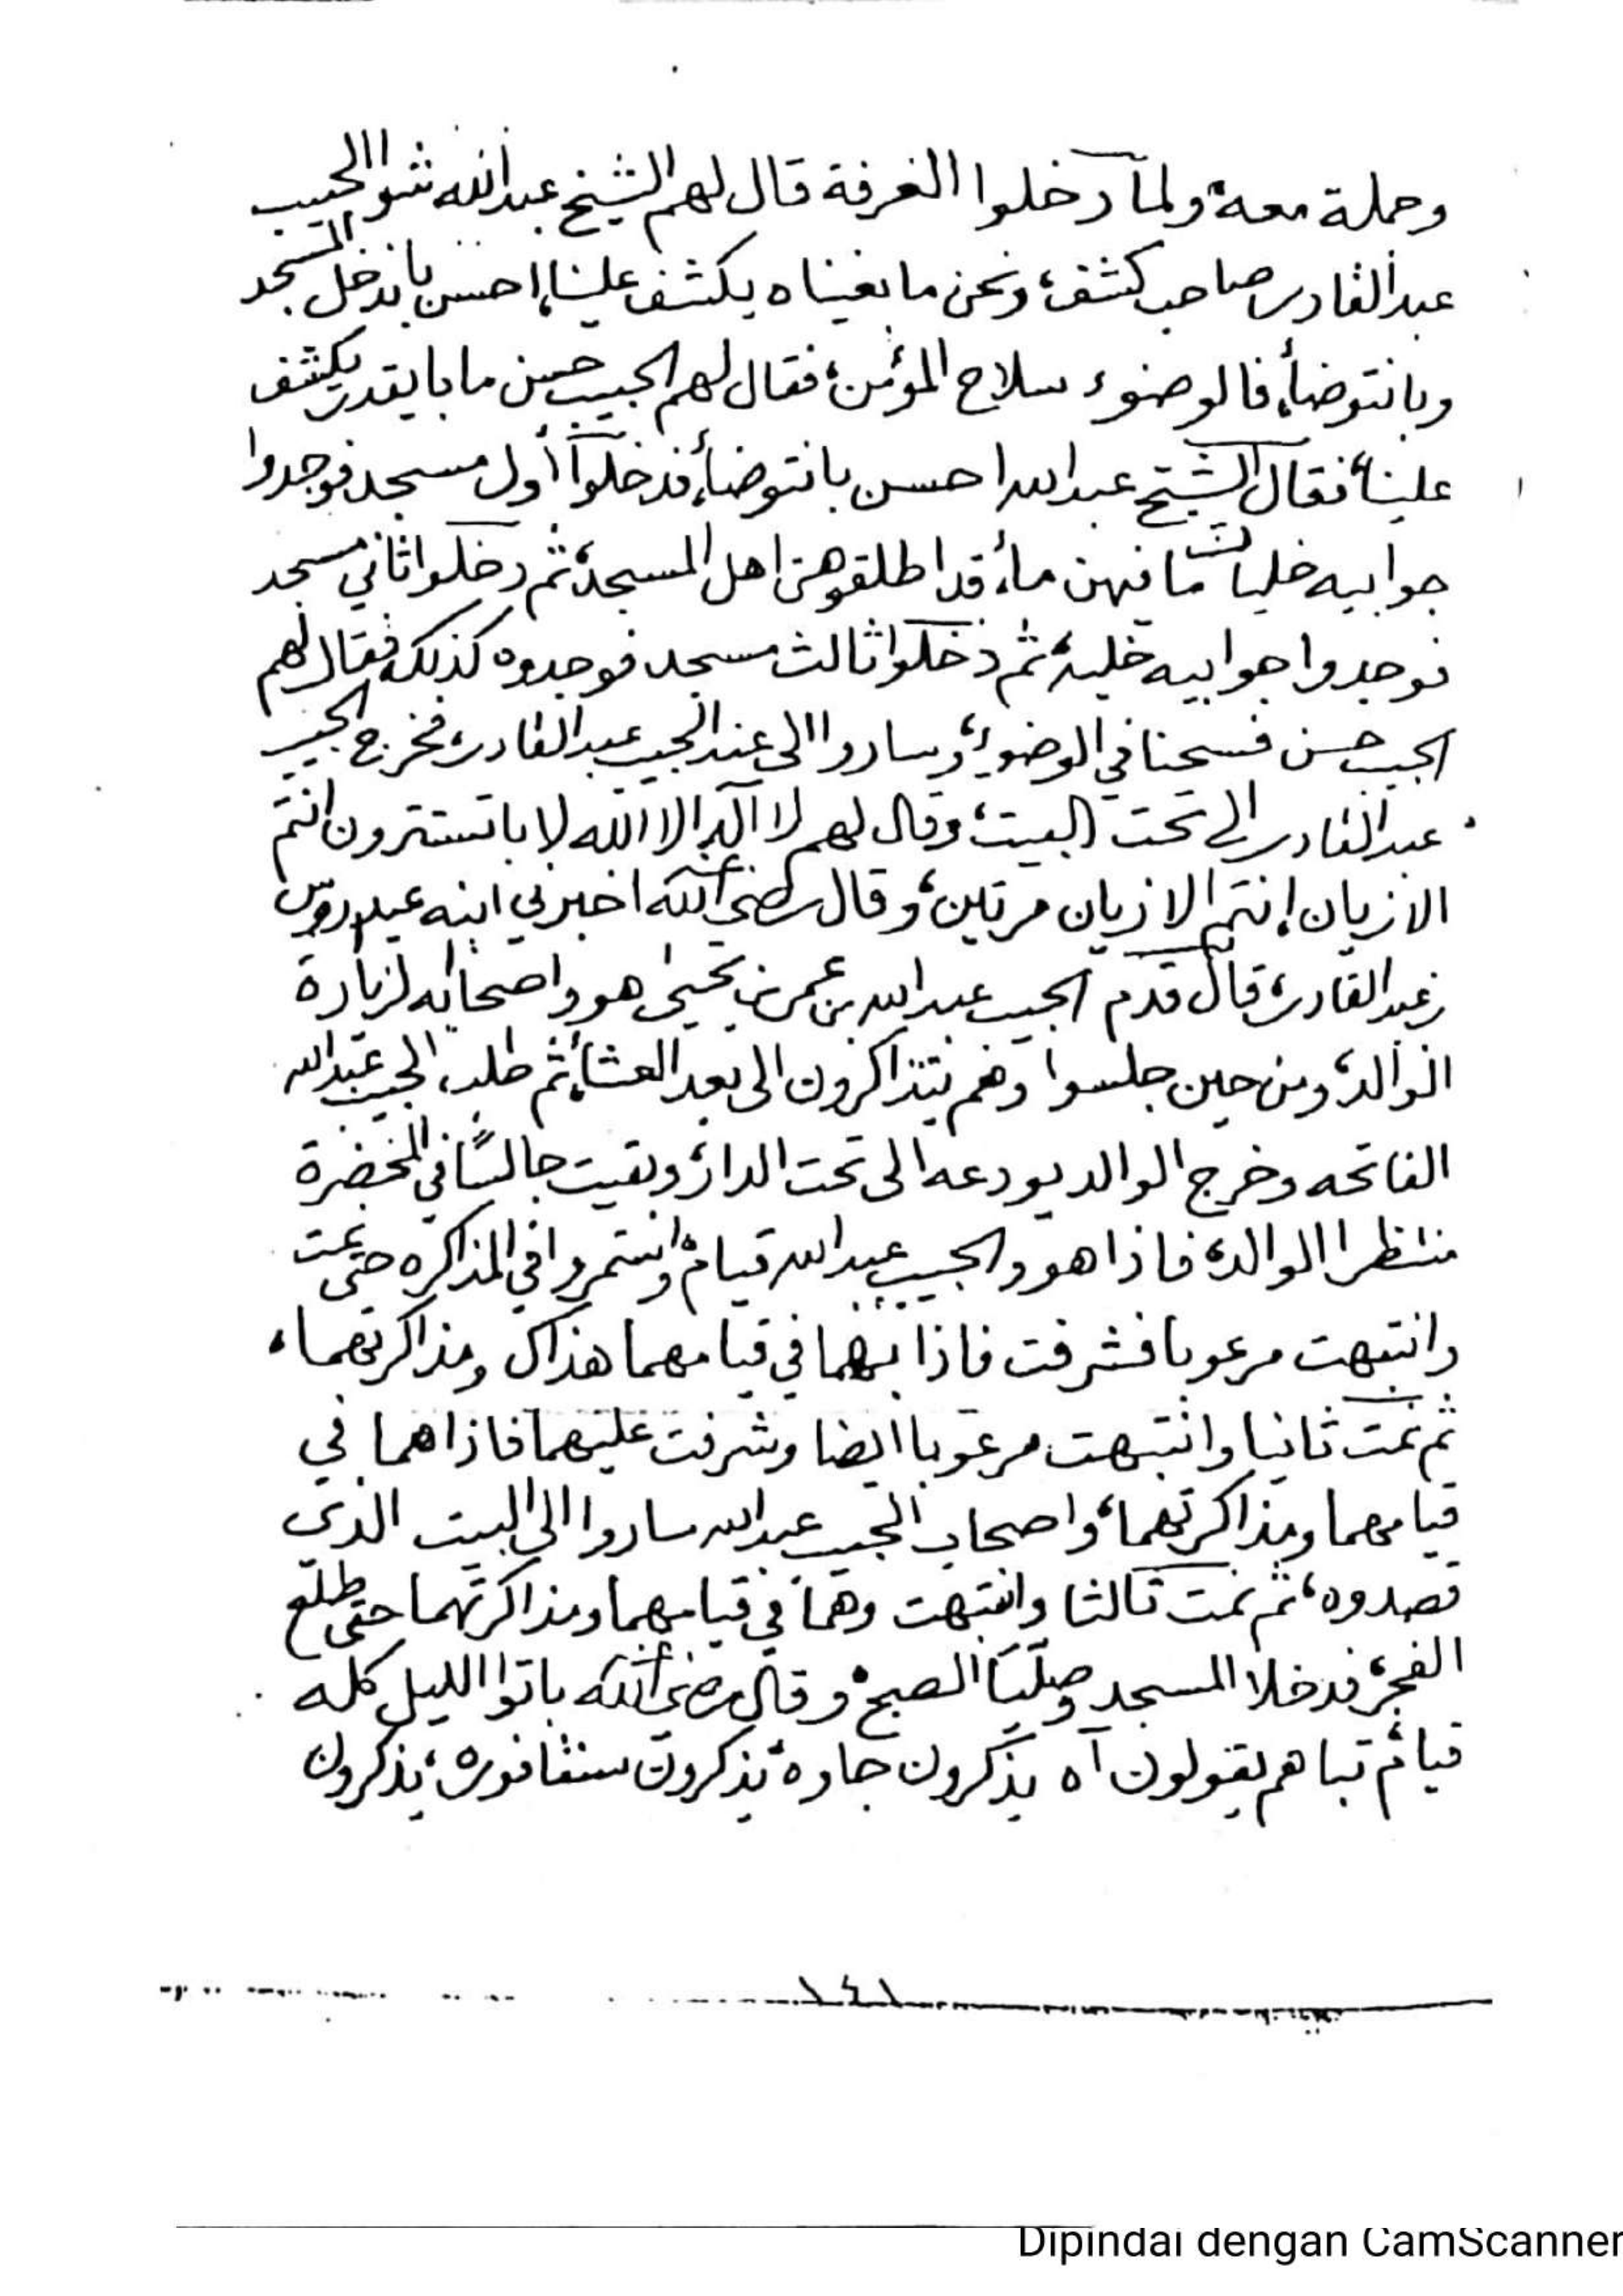 وحملة معه، ولما دخلوا الغرفة قال لهم الشيخ عبدالله شوا الحبيب
عبدالقادر صاحب كشف، ونحن ما بغيناه يكشف علينا، احسن باندخل المسجد
وبانتوضأ، فالوضوء سلاح المؤمن، فقال لهم الحبيب حسن ما بايقدر يكشف
علينا، فقال الشيخ عبدالله احسن بانتوضأ، فدخلوا أول مسجد فوجدوا
جوابيه خليات ما فيهن ماء، قد اطلقوهن اهل المسجد، ثم دخلوا ثاني مسجد
فوجدوا جوابيه خلية، ثم دخلوا ثالث مسجد فوجدوه كذلك، فقال لهم
الحبيب حسن فسحنا في الوضوء، وساروا الى عند الحبيب عبدالقادر، فخرج الحبيب
عبدالقادر الى تحت البيت، وقال لهم لا اله الا الله لا باتستترون انتم
الازيان، انتم الازيان مرتين، وقال رضي الله عنه اخبرني ابنه عيدروس
بن عبدالقادر، قال قدم الحبيب عبدالله بن عمر بن يحيى هو واصحابه لزيارة
الوالد، ومن حين جلسوا وهم يتذاكرون الى بعد العشاء، ثم طلب الحبيب عبدالله
الفاتحه وخرج الوالد يودعه الى تحت الدار، وبقيت جالسًا في المحضرة
منتظرا الوالد، فاذا هو والحبيب عبدالله قيام، واستمروا في المذاكره حتى نمت
وانتبهت مرعوبا فشرفت فاذا بهما في قيامهما هذاك ومذاكرتهما،
ثم نمت ثانيا وانتبهت مرعوبا ايضا وشرفت عليهما فاذا هما في
قيامهما ومذاكرتهما، واصحاب الحبيب عبدالله ساروا الى البيت الذي
قصدوه، ثم نمت ثالثا وانتبهت وهما في قيامهما ومذاكرتهما حتى طلع
الفجر، فدخلا المسجد وصليا الصبح، وقال رضي الله عنه باتوا الليل كله
قيام، تباهم يقولون آه يذكرون جاوه، يذكرون سنقافوره، يذكرون
١٤١
Dipindai dengan CamScanner